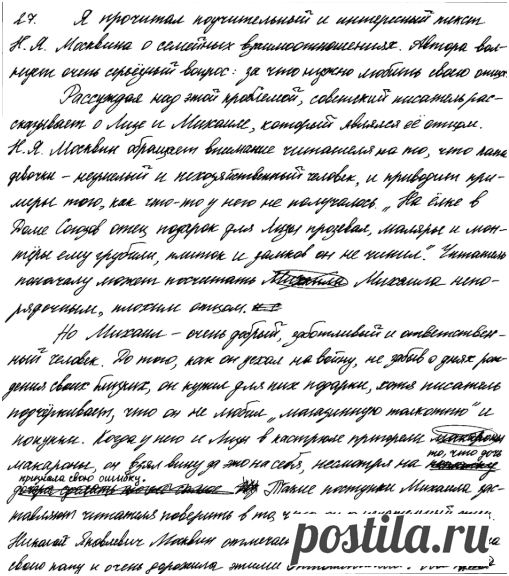 27. Я прочитал поучительный и интересный текст
Н.Я. Москвина о семейных взаимоотношениях. Автора вол-
нует очень серьёзный вопрос: за что нужно любить своего отца?
Рассуждая над этой проблемой, советский писатель рас-
сказывает о Лиде и Михаиле, который являлся её отцом.
Н.Я. Москвин обращает внимание читателя на то, что папа
девочки – неумелый и нехозяйственный человек, и приводит при-
меры того, как что-то у него не получалось. „На ёлке в
Доме Союзов отец подарок для Лиды прозевал, маляры и мон-
тёры ему грубили, плиток и замков он не чинил." Читатель
поначалу может посчитать Михаила непо-
рядочным, плохим отцом.
Но Михаил – очень добрый, заботливый и ответствен-
ный человек. До того, как он уехал на войну, не забыв о днях рож-
дения своих близких, он купил для них подарки, хотя писатель
подчёркивает, что он не любил „магазинную толкотню" и
покупки. Когда у него и Лиды в кастрюле пригорели
макароны, он взял вину за это на себя, несмотря на то, что дочь
признала свою ошибку.
Такие поступки Михаила зас-
тавляют читателя поверить в то, что
Николай Яковлевич Москвин отмечает
свого папу и очень дорожила этими
postila.ru